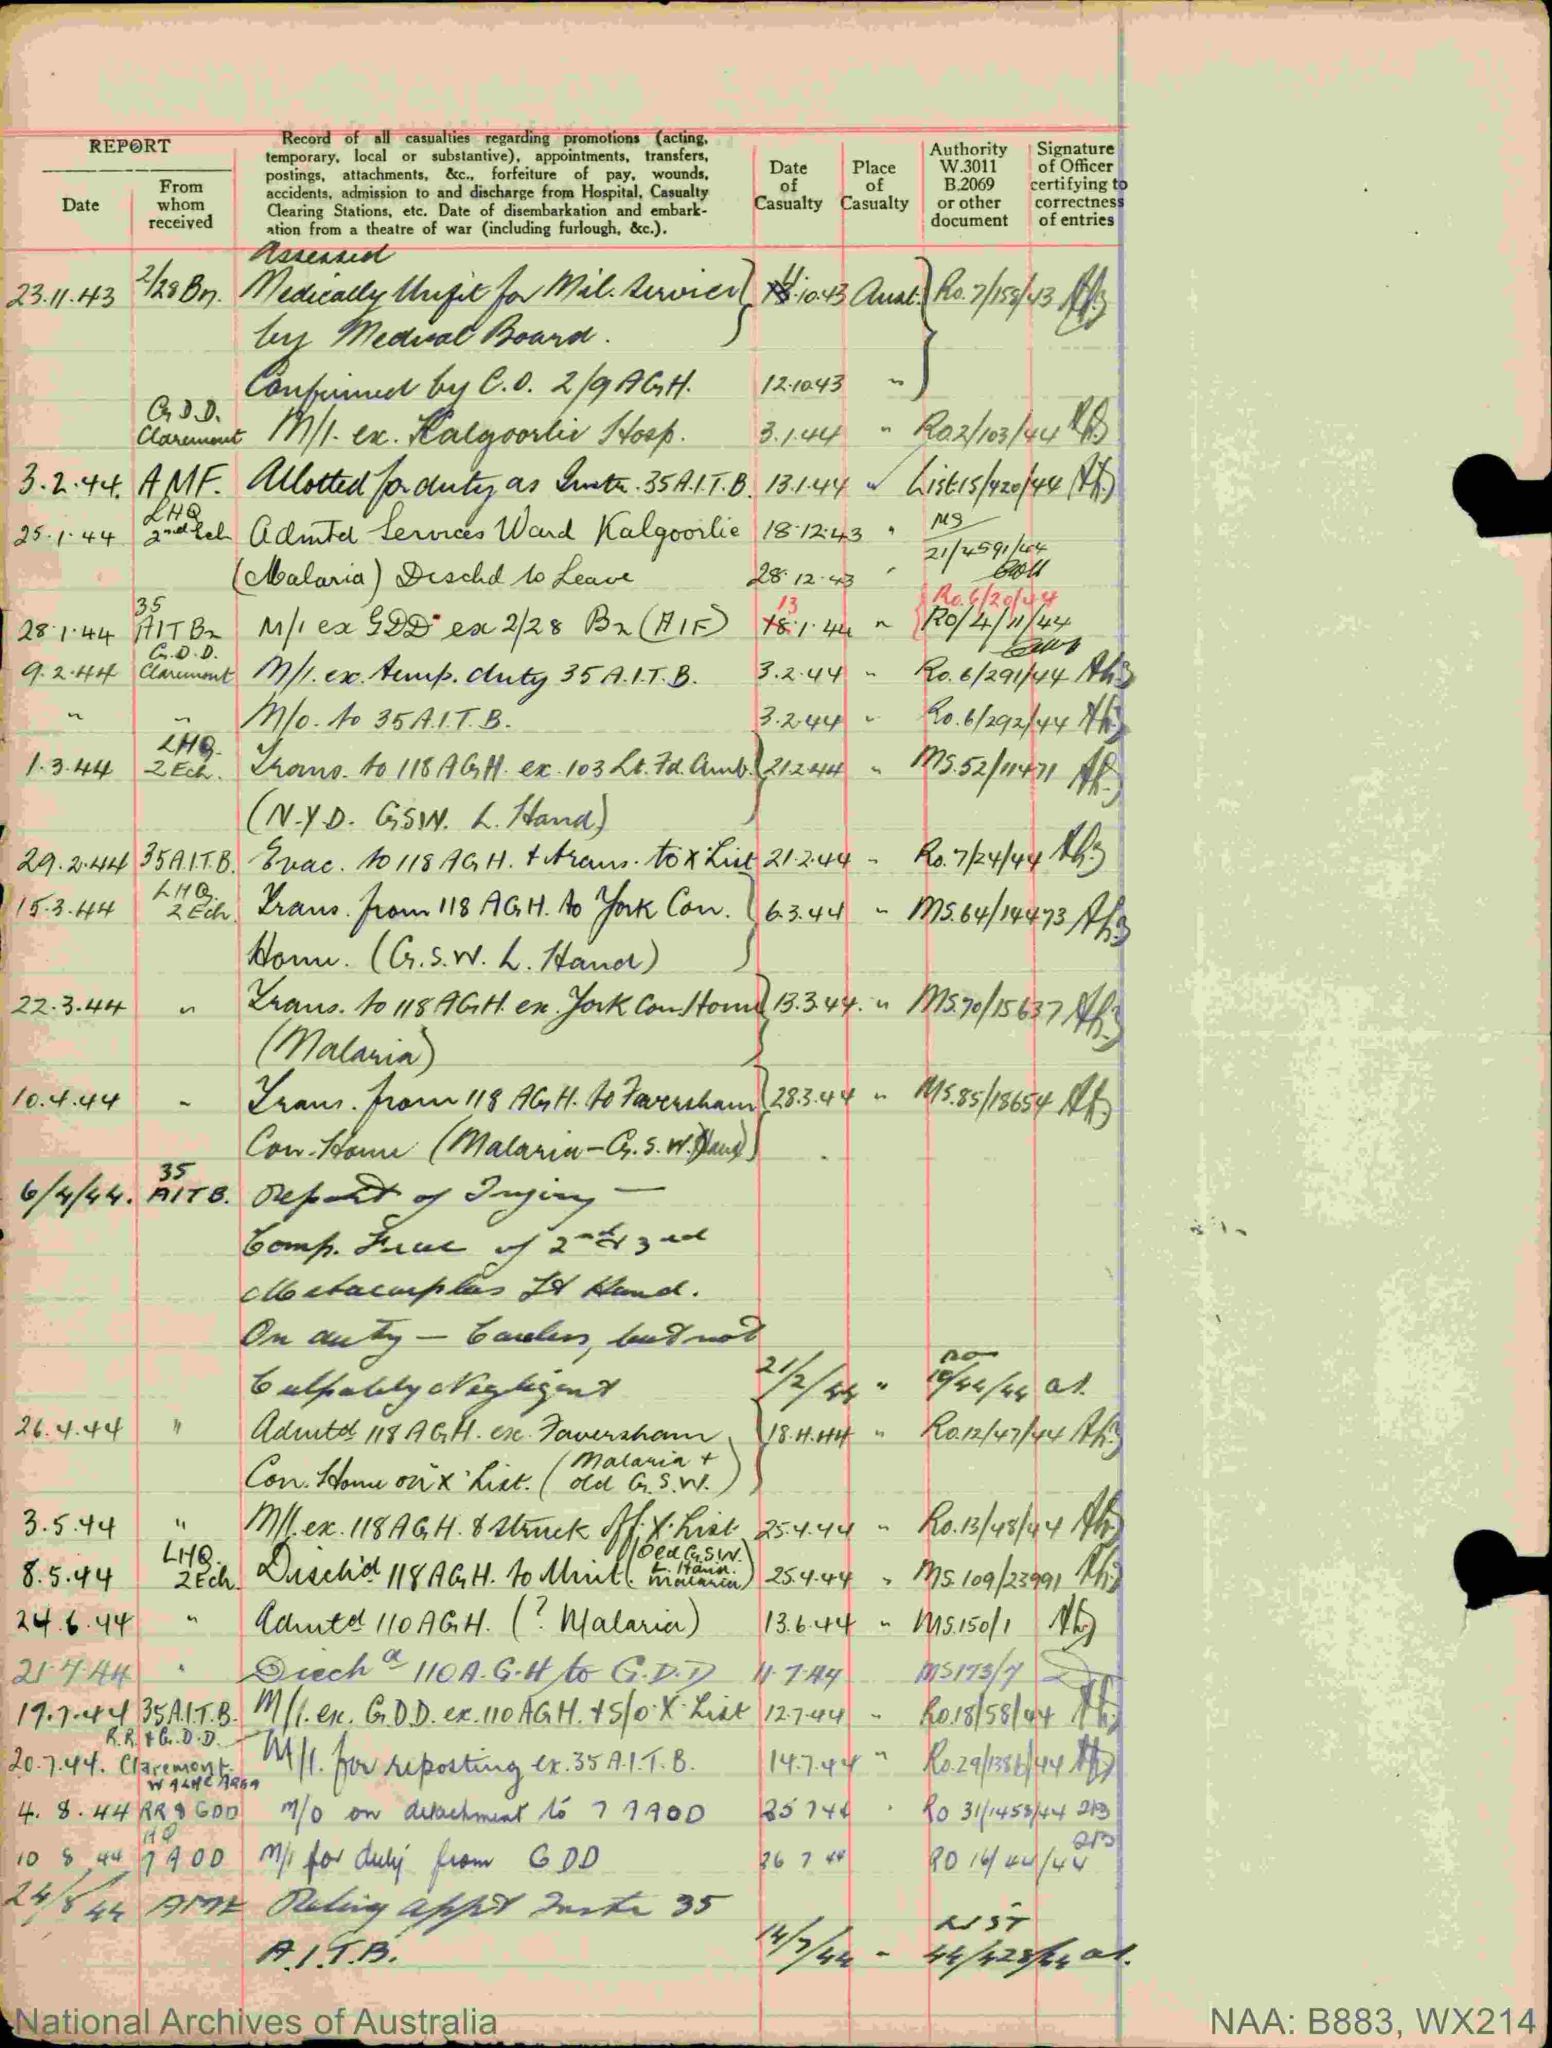 REPORT
Date
From whom received
Record of all casualties regarding promotions (acting,
temporary, local or substantive), appointments, transfers,
postings, attachments, &c., forfeiture of pay, wounds,
accidents, admission to and discharge from Hospital, Casualty
Clearing Stations, etc. Date of disembarkation and embark-
ation from a theatre of war (including furlough, &c.).
Date of Casualty
Place of Casualty
Authority W.3011 B.2069 or other document
Signature of Officer certifying to correctness of entries
Assessed
23.11.43 2/28 Bn. Medically Unfit for Mil. Service 11.10.43 Aust. Ro.7/158/43
by Medical Board.
Confirmed by C.O. 2/9 AGH. 12.10.43 "
G.D.D. Claremont M/I. ex. Kalgoorlie Hosp. 3.1.44 " Ro.2/103/44
3.2.44. AMF. Allotted for duty as Instr. 35 A.I.T.B. 13.1.44 " List 15/420/44
25.1.44 LHQ 2nd Ech Admtd Services Ward Kalgoorlie 18.12.43 " MS 21/4591/44
(Malaria) Dischd to Leave 28.12.43 "
Ro.6/20/44
28.1.44 35 AITBn M/I ex GDD ex 2/28 Bn (AIF) 13 18.1.44 " RO/4/11/44
9.2.44 G.D.D. Claremont M/I. ex. temp. duty 35 A.I.T.B. 3.2.44 " Ro.6/291/44
" " M/O. to 35 A.I.T.B. 3.2.44 " Ro.6/292/44
1.3.44 LHQ. 2 Ech. Trans. to 118 AGH. ex. 103 Lt. Fd. Amb. 21.2.44 " MS.52/11471
(N.Y.D. GSW. L. Hand)
29.2.44 35 A.I.T.B. Evac. to 118 AGH. & trans. to X List 21.2.44 " Ro.7/24/44
15.3.44 LHQ 2 Ech. Trans. from 118 AGH. to York Con. 6.3.44 " MS.64/14473
Home. (G.S.W. L. Hand)
22.3.44 " Trans. to 118 AGH. ex. York Con. Home 13.3.44. " MS.70/15637
(Malaria)
10.4.44 " Trans. from 118 AGH. to Faversham 28.3.44 " MS.85/18654
Con. Home (Malaria - G.S.W. Hand)
6/4/44. 35 AITB. Report of Injury —
Comp. Frac of 2nd & 3rd
Metacarplas Lt Hand.
On duty — Careless, but not
Culpably Negligent 21/2/44 " 10/44/44
26.4.44 " Admtd 118 AGH. ex. Faversham 18.4.44 " Ro.12/47/44
Con. Home on "X" List. (Malaria + old G.S.W.)
3.5.44 " M/I. ex. 118 AGH. & struck off X. List 25.4.44 " Ro.13/48/44
8.5.44 LHQ. 2 Ech. Disch'd 118 AGH. to Unit (Old G.S.W. L. Hand. Malaria) 25.4.44 " MS.109/23991
24.6.44 " Admtd 110 AGH. (? Malaria) 13.6.44 " MS.150/1
21.7.44 " Disch d 110 A.G.H to G.D.D 11.7.44 MS173/7
19.7.44 35 A.I.T.B. M/I. ex. G.D.D. ex. 110 AGH. & S/O X. List 12.7.44 " Ro.18/58/44
20.7.44. R.R. & G.D.D. Claremont. M/I. for reposting ex. 35 A.I.T.B. 14.7.44 " Ro.29/1386/44
4.8.44 RR & GDD M/O on detachment to 7 AAOD 25 7 44 " RO 31/1453/44
10 8 44 HQ 7 AOD M/I for duty from GDD 26 7 44 RO 16/44/44
24/8/44 AMF Reling appt Instr 35
A.I.T.B. 14/7/44 " LIST 44/428/44
National Archives of Australia
NAA: B883, WX214